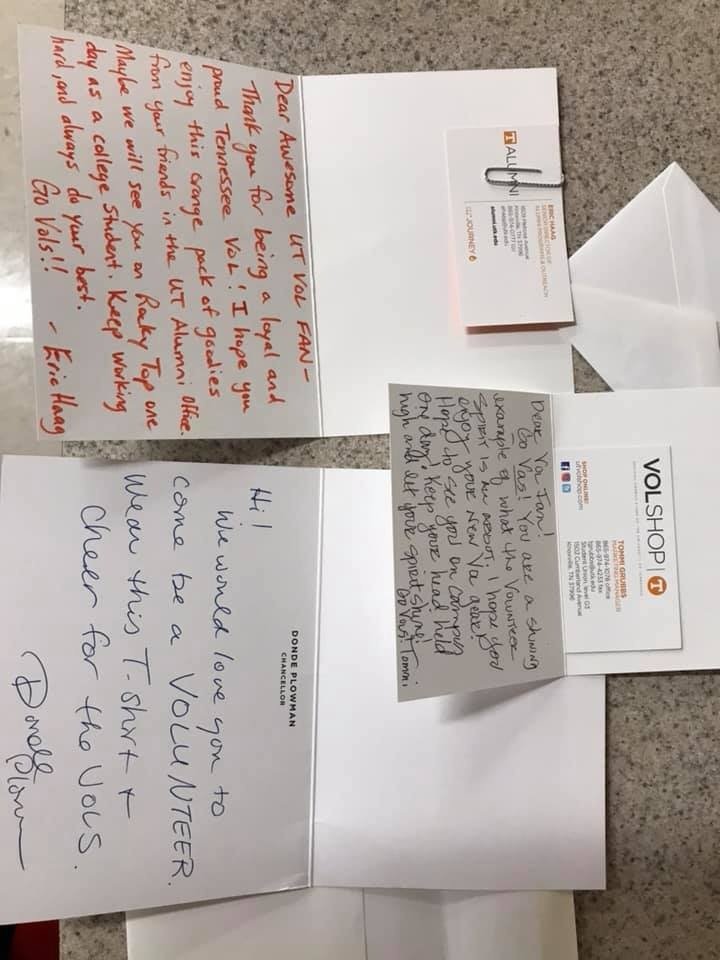 Dear Awesome UT VOL FAN -
Thank you for being a loyal and
proud Tennessee Vol! I hope you
enjoy this orange pack of goodies
from your friends in the UT Alumni Office.
Maybe we will see you on Rocky Top one
day as a college student. Keep working
hard, and always do your best.
Go Vols!!
- Eric Haag
T ALUMNI
ERIC HAAG
SENIOR DIRECTOR OF
ALUMNI PROGRAMS & OUTREACH
Knoxville, TN 37996
alumni.utk.edu
JOURNEY
Dear Vol Fan!
Go Vols! You are a shining
example of what the Volunteer
spirit is all about. I hope you
enjoy your new Vol gear!
Hope to see you on campus
one day! Keep your head held
high and let your spirit shine!
Go Vols! Tommi
VOLSHOP | T
TOMMI GRUBBS
MARKETING MANAGER
865-974-1076 office
865-974-4233 fax
tgrubbs@utk.edu
Student Union, level 02
1502 Cumberland Avenue
Knoxville, TN 37996
SHOP ONLINE!
utvolshop.com
DONDE PLOWMAN
CHANCELLOR
Hi!
We would love you to
come be a VOLUNTEER.
Wear this T-shirt +
cheer for the VOLS.
Donde Plowman